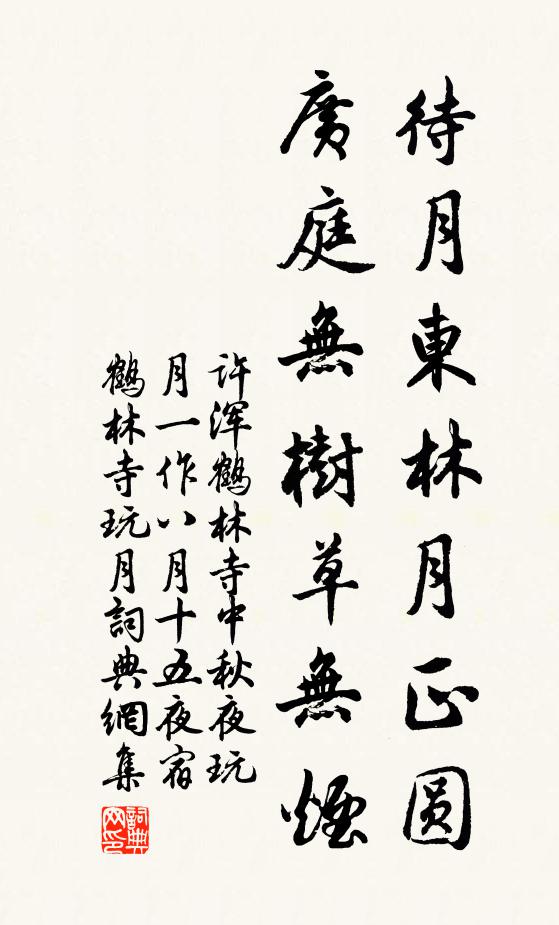 待月東林月正圆
廣庭無樹草無煙
许浑鶴林寺中秋夜玩
月一作八月十五夜宿
鶴林寺玩月詞典網集
詞典网印